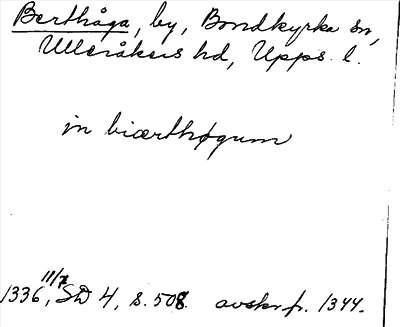 Berthåga, by, Bondkyrka sn,
Ulleråkers hd, Upps. l.
in biærthøgum
11/7
1336, SD 4, s. 508. avskr. fr. 1344.